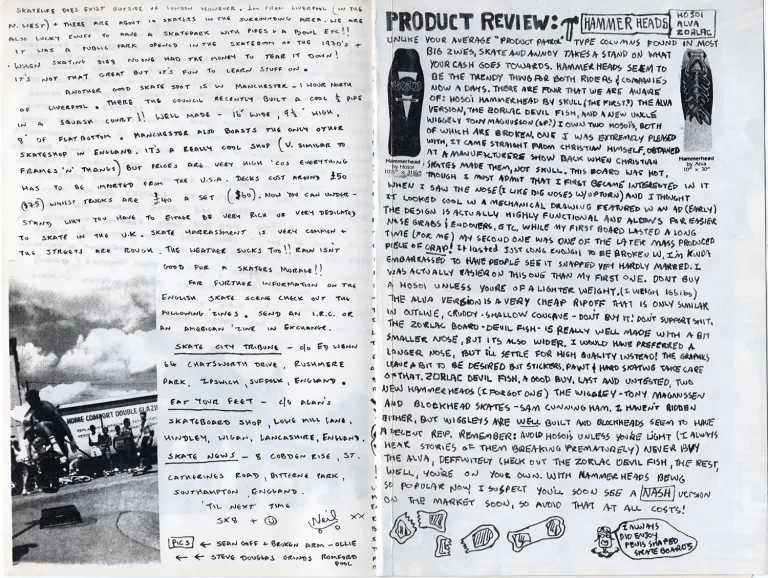 SKATELIFE DOES EXIST OUTSIDE OF LONDON HOWEVER. I'm FROM LIVERPOOL (IN THE
N. WEST) + THERE ARE ABOUT 10 SKATERS IN THE SURROUNDING AREA. WE ARE
ALSO LUCKY ENUFF TO HAVE A SKATEPARK WITH PIPES + A BOWL ETC!!
IT WAS A PUBLIC PARK OPENED IN THE SKATEBOOM OF THE 1970'S +
WHEN SKATING DIED NOONE HAD THE MONEY TO TEAR IT DOWN!
IT'S NOT THAT GREAT BUT IT'S FUN TO LEARN STUFF ON.
ANOTHER GOOD SKATE SPOT IS IN MANCHESTER - 1 HOUR NORTH
OF LIVERPOOL. THERE THE COUNCIL RECENTLY BUILT A COOL ½ PIPE
IN A SQUASH COURT!! WELL MADE - 16' WIDE, 9½' HIGH,
8' OF FLATBOTTOM. MANCHESTER ALSO BOASTS THE ONLY OTHER
SKATESHOP IN ENGLAND. IT'S A REALLY COOL SHOP (V. SIMILAR TO
FRAMES 'N' THANGS) BUT PRICES ARE VERY HIGH 'COS EVERYTHING
HAS TO BE IMPORTED FROM THE U.S.A. DECKS COST AROUND £50
($75) WHILST TRUCKS ARE £40 A SET ($60). NOW YOU CAN UNDER-
STAND WHY YOU HAVE TO EITHER BE VERY RICH OR VERY DEDICATED
TO SKATE IN THE U.K. SKATE HARRASSMENT IS VERY COMMON +
THE STREETS ARE ROUGH. THE WEATHER SUCKS TOO!! RAIN ISN'T
GOOD FOR A SKATERS MORALE!!
FOR FURTHER INFORMATION ON THE
ENGLISH SKATE SCENE CHECK OUT THE
FOLLOWING 'ZINES. SEND AN I.R.C. OR
AN AMERICAN 'ZINE IN EXCHANGE.
SKATE CITY TRIBUNE - c/o ED WENN
64 CHATSWORTH DRIVE, RUSHMERE
PARK. IPSWICH, SUFFOLK, ENGLAND.
EAT YOUR FEET - C/O ALAN'S
SKATEBOARD SHOP, LOWE MILL LANE,
HINDLEY, WIGAN, LANCASHIRE, ENGLAND.
SKATE NEWS - 8 COBDEN RISE, ST.
CATHERINGS ROAD, BITTERNE PARK,
SOUTHAMPTON, ENGLAND.
'TIL NEXT TIME
SK8 +
Neil XX
PICS ← SEAN GOFF + BROKEN ARM - OLLIE
← ← STEVE DOUGLAS GRINDS ROMFORD
POOL
HOME COMFORT DOUBLE GLAZI
PRODUCT REVIEW: HAMMER HEADS HOSOI
ALVA
ZORLAC
UNLIKE YOUR AVERAGE "PRODUCT PATROL" TYPE COLUMNS FOUND IN MOST
BIG ZINES, SKATE AND ANNOY TAKES A STAND ON WHAT
YOUR CASH GOES TOWARDS. HAMMERHEADS SEEM TO
BE THE TRENDY THING FOR BOTH RIDERS & COMPANIES
NOW A DAYS. THERE ARE FOUR THAT WE ARE AWARE
OF: HOSOI HAMMERHEAD BY SKULL (THE FIRST?) THE ALVA
VERSION, THE ZORLAC DEVIL FISH, AND A NEW UNCLE
WIGGELY TONY MAGNUSSON (SP?) I OWN TWO HOSOIS, BOTH
OF WHICH ARE BROKEN, ONE I WAS EXTREMELY PLEASED
WITH, IT CAME STRAIGHT FROM CHRISTIAN HIMSELF, OBTAINED
AT A MANUFACTURERS SHOW BACK WHEN CHRISTIAN
SKATES MADE THEM, NOT SKULL. THIS BOARD WAS HOT,
THOUGH I MUST ADMIT THAT I FIRST BECAME INTERESTED IN IT
Hammerhead
by Hosoi
Hammerhead
by Alva
10" × 30"
WHEN I SAW THE NOSE (I LIKE BIG NOSES W/UPTURN) AND I THOUGHT
IT LOOKED COOL IN A MECHANICAL DRAWING FEATURED IN AN AD (EARLY)
THE DESIGN IS ACTUALLY HIGHLY FUNCTIONAL AND ALLOWS FOR EASIER
NOSE GRABS & ENDOVERS, ETC. WHILE MY FIRST BOARD LASTED A LONG
TIME (FOR ME) MY SECOND ONE WAS ONE OF THE LATER MASS PRODUCED
PIECE OF CRAP! IT LASTED JUST LONG ENOUGH TO BE BROKEN IN, I'm KINDA
EMBARRASSED TO HAVE PEOPLE SEE IT SNAPPED YET HARDLY MARRED. I
WAS ACTUALLY EASIER ON THIS ONE THAN MY FIRST ONE. DONT BUY
A HOSOI UNLESS YOU'RE OF A LIGHTER WEIGHT, (I WEIGH 165lbs)
THE ALVA VERSION IS A VERY CHEAP RIPOFF THAT IS ONLY SIMILAR
IN OUTLINE, CRUDDY - SHALLOW CONCAVE - DON'T BUY IT! DON'T SUPPORT SHIT.
THE ZORLAC BOARD - DEVIL FISH - IS REALLY WELL MADE WITH A BIT
SMALLER NOSE, BUT ITS ALSO WIDER. I WOULD HAVE PREFERRED A
LONGER NOSE, BUT I'LL SETTLE FOR HIGH QUALITY INSTEAD! THE GRAPHICS
LEAVE A BIT TO BE DESIRED BUT STICKERS, PAINT & HARD SKATING TAKE CARE
OF THAT. ZORLAC DEVIL FISH, A GOOD BUY. LAST AND UNTESTED, TWO
NEW HAMMERHEADS (I FORGOT ONE) THE WIGGLEY - TONY MAGNUSSEN
AND BLOCKHEAD SKATES - SAM CUNNINGHAM. I HAVEN'T RIDDEN
EITHER, BUT WIGGLEYS ARE WELL BUILT AND BLOCKHEADS SEEM TO HAVE
A DECENT REP. REMEMBER: AVOID HOSOIS UNLESS YOU'RE LIGHT (I ALWAYS
HEAR STORIES OF THEM BREAKING PREMATURELY) NEVER BUY
THE ALVA, DEFFINITELY CHECK OUT THE ZORLAC DEVIL FISH, THE REST,
WELL, YOU'RE ON YOUR OWN. WITH HAMMERHEADS BEING
SO POPULAR NOW, I SUSPECT YOU'LL SOON SEE A NASH VERSION
ON THE MARKET SOON, SO AVOID THAT AT ALL COSTS!
I ALWAYS
DID ENJOY
PENIS SHAPED
SKATEBOARDS